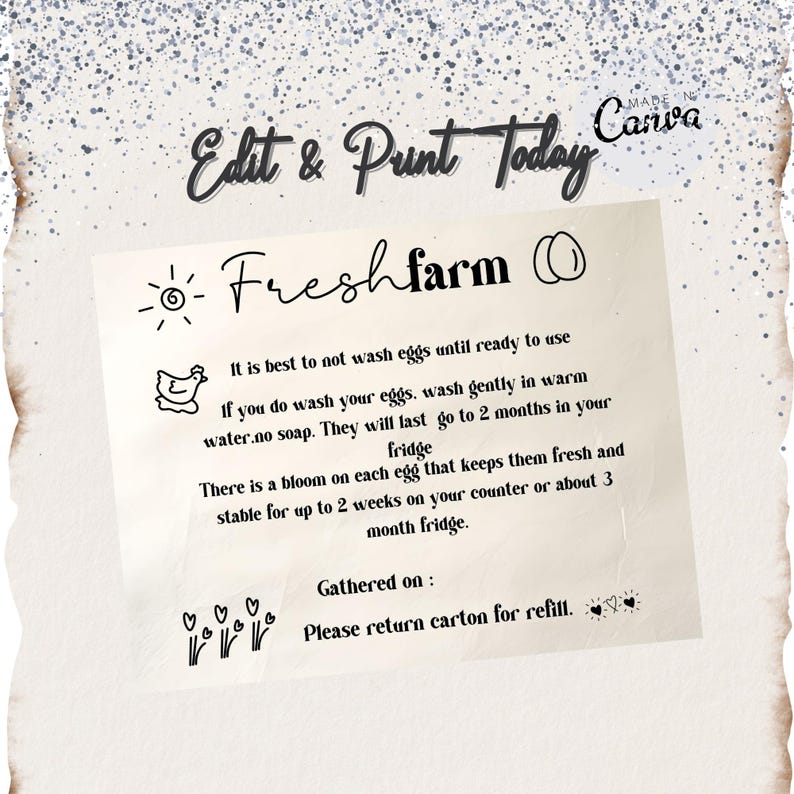 MADE IN
Canva
Edit & Print Today
Freshfarm
It is best to not wash eggs until ready to use
If you do wash your eggs. wash gently in warm
water.no soap. They will last go to 2 months in your
fridge
There is a bloom on each egg that keeps them fresh and
stable for up to 2 weeks on your counter or about 3
month fridge.
Gathered on :
Please return carton for refill.